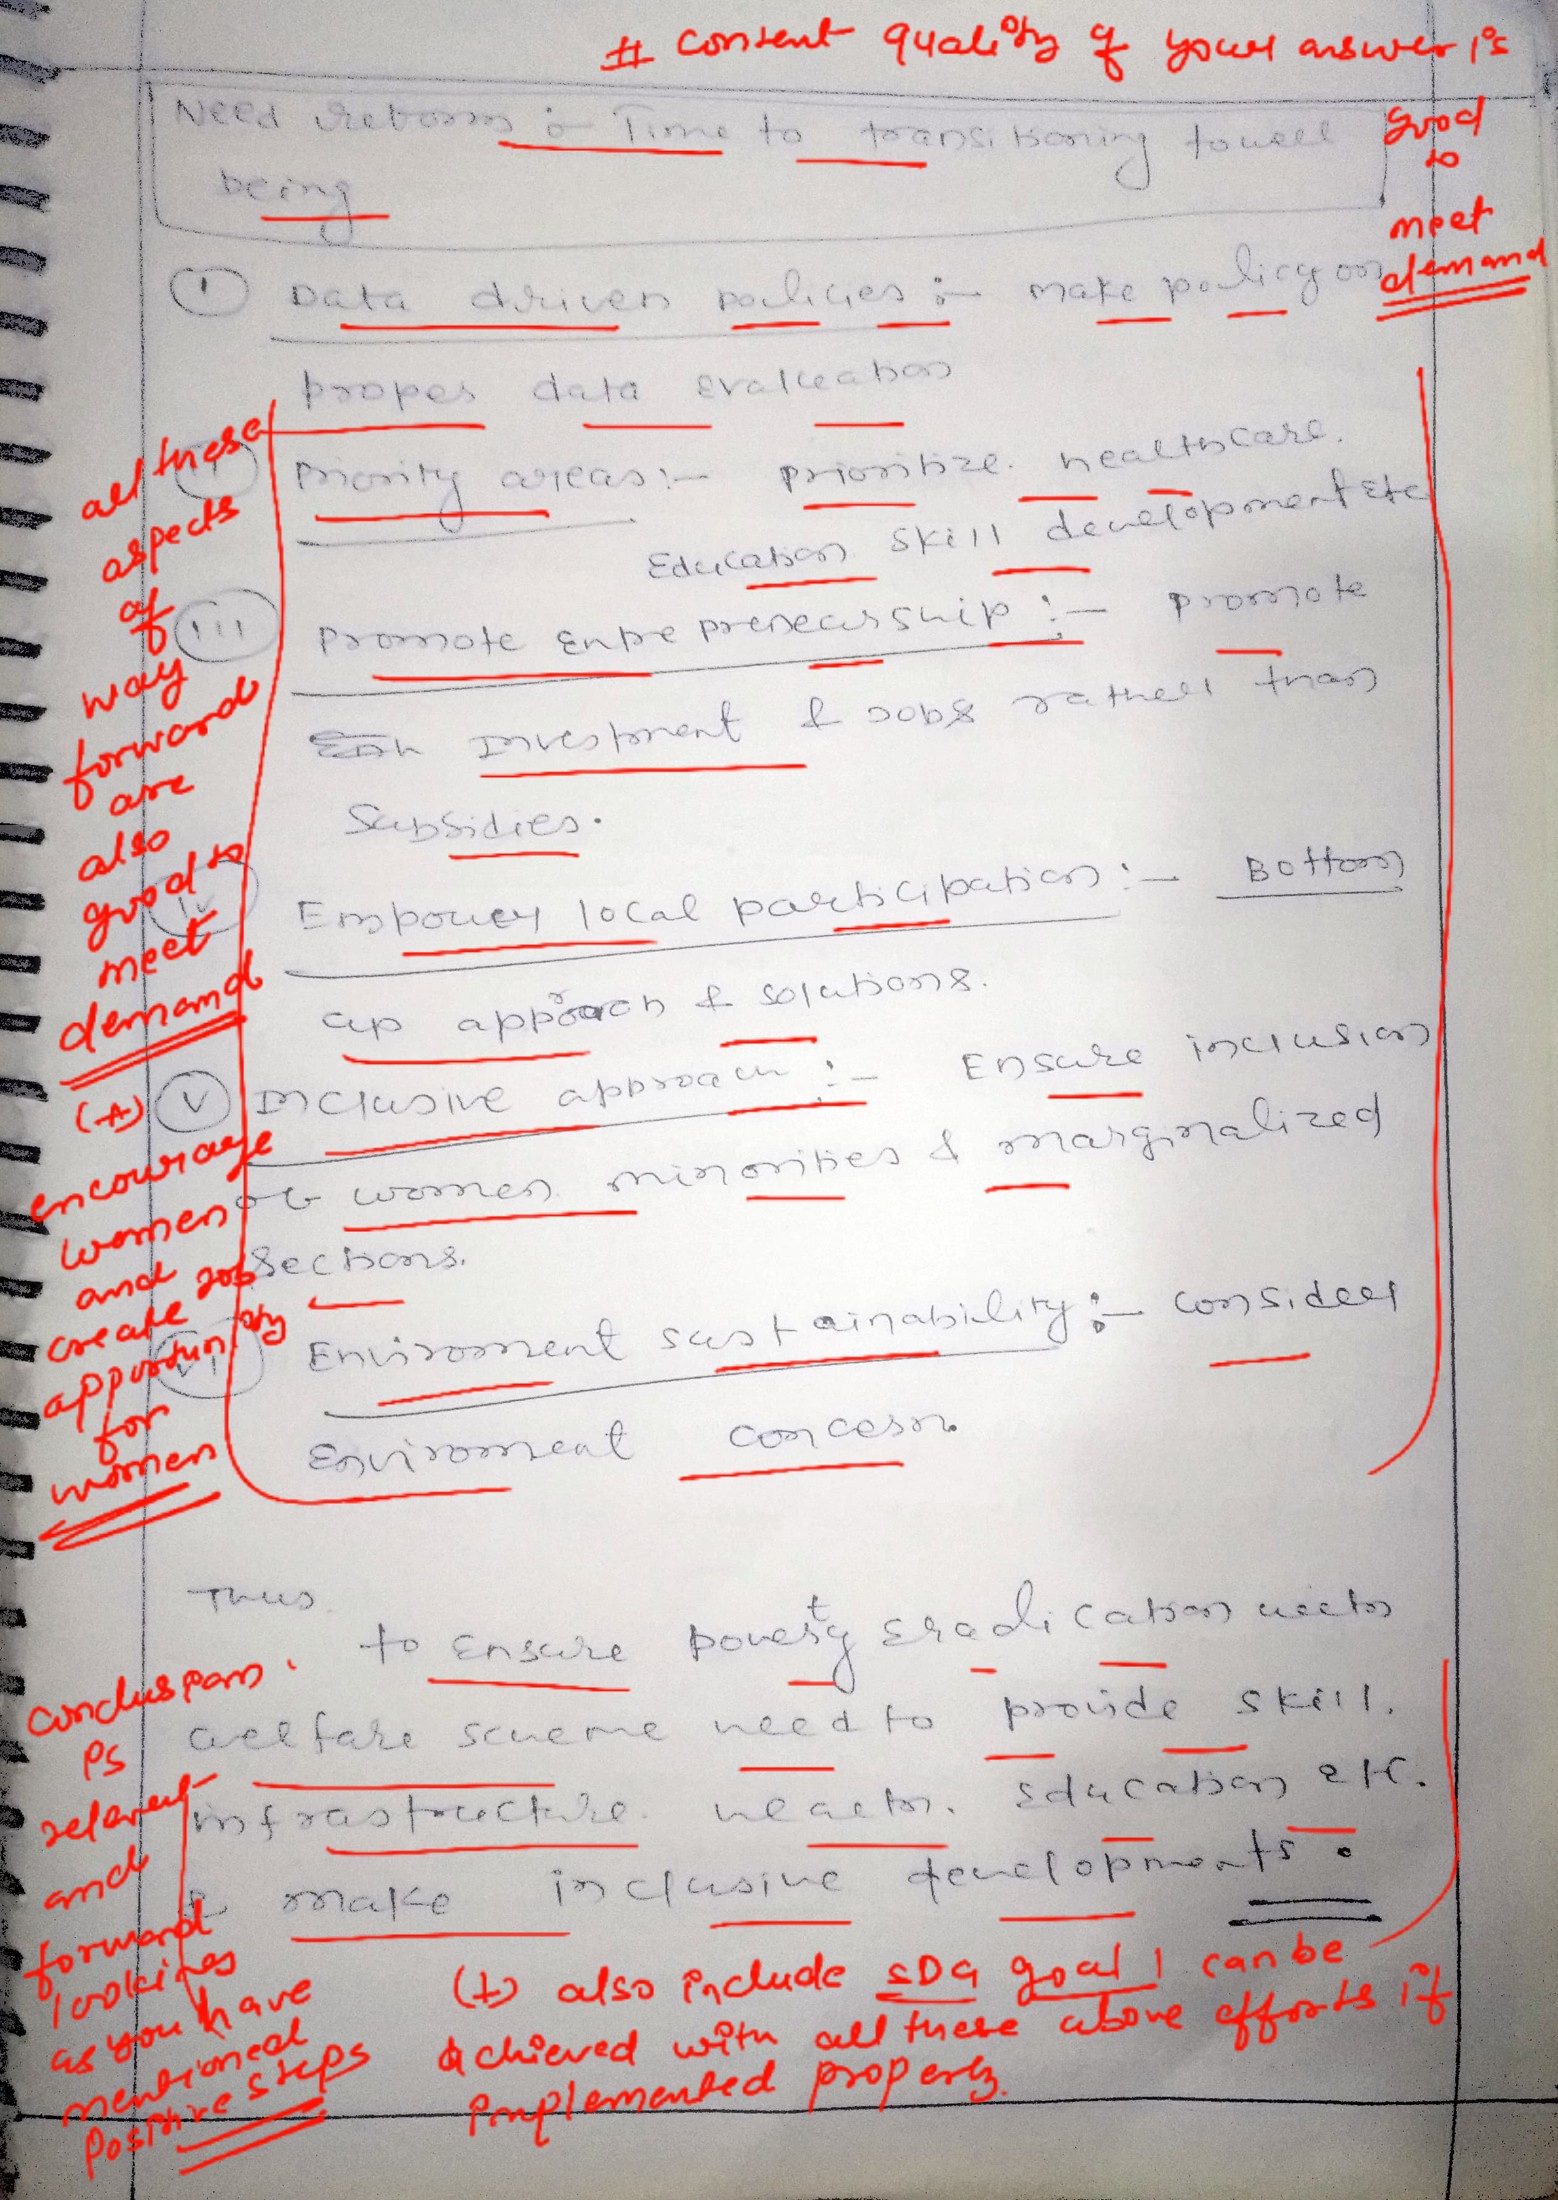 # content quality of your answer is
good
to
meet
demand
Need reform :- Time to transitioning towell
being
I Data driven policies :- make policy on
proper data evaluation
II Priority areas :- prioritize healthcare.
Education skill development etc
III Promote Entrepreneurship :- Promote
Investment & Jobs rather than
Subsidies.
IV Empower local participation :- Bottom
up approach & solutions.
V Inclusive approach :- Ensure inclusion
of women minorities & marginalized
sections.
VI Enviroment sustainability :- consider
Enviroment concern.
all these
aspects
of
way
forward
are
also
good to
meet
demand
(+)
encourage
women
and
create job
opportunity
for
women
Thus
to ensure poverty eradication
welfare scheme need to provide skill.
infrastructure. Education etc.
& make inclusive developments.
conclusion
is
relevent
and
forward
looking
as you have
mentioned
positive steps
(+) also include SDG goal 1 can be
achieved with all these above efforts if
implemented properly.